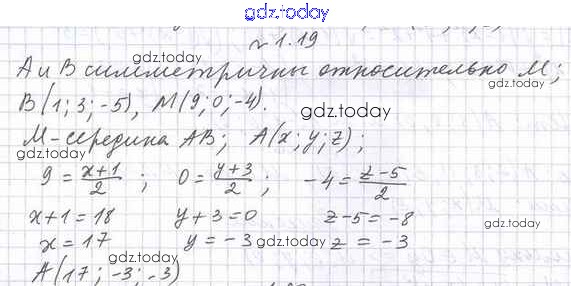 gdz.today
№ 1.19
gdz.today
А и В симметричны относительно М;
В(1; 3; -5), М(9; 0; -4).
gdz.today
М-середина АВ; А(x; y; z);
gdz.today
9 = (x+1)/2 ; 0 = (y+3)/2 ; -4 = (z-5)/2
x+1 = 18 y+3 = 0 z-5 = -8
gdz.today
x = 17 y = -3 gdz.today z = -3
gdz.today
А(17; -3; -3)